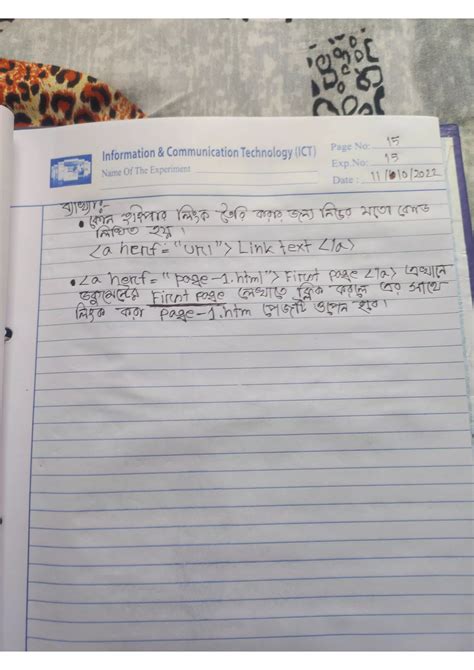 Information & Communication Technology (ICT)
Name Of The Experiment
Page No: 15
Exp.No: 15
Date: 11/10/2022
ব্যাখ্যা:-
• কোন হাইপার লিংক তৈরি করার জন্য নিচের মতো কোড
লিখিত হয়।
<a herf="url"> Link text </a>
• <a herf="page-1.html"> First page </a> এখানে
ডকুমেন্টের First page লেখাতে ক্লিক করলে এর সাথে
লিংক করা page-1.htm পেজটি ওপেন হবে।